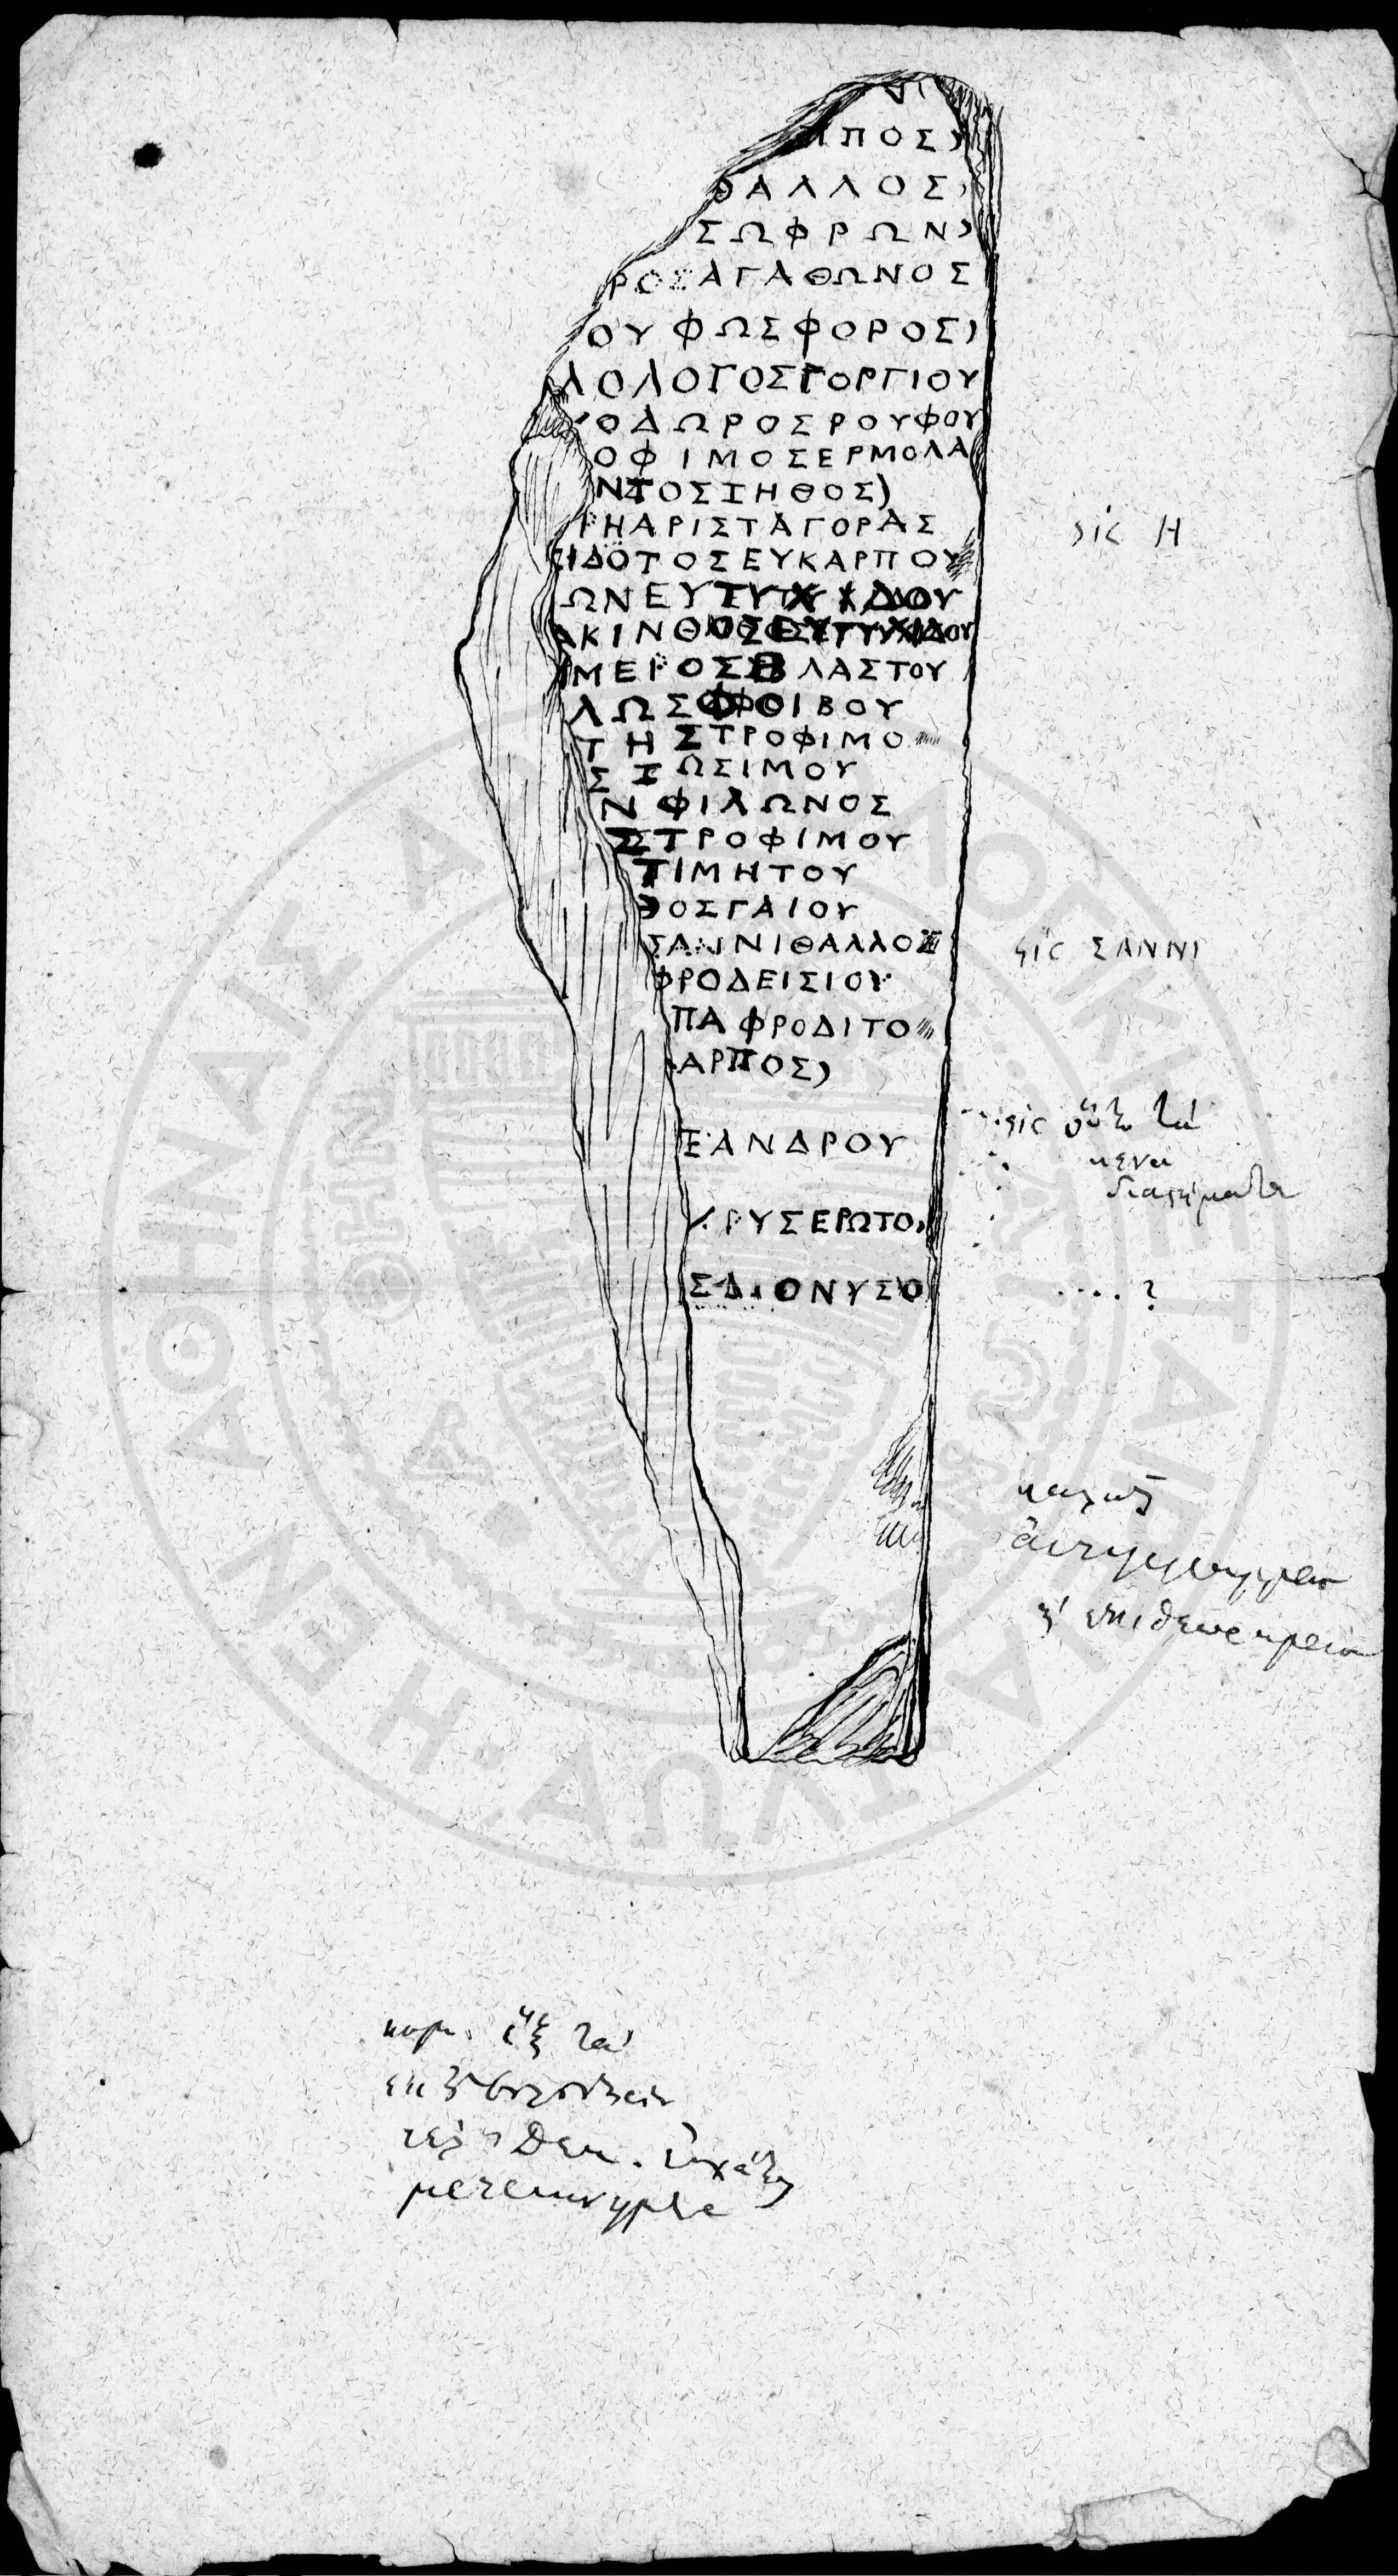 ΠΟΣ)
ΘΑΛΛΟΣ)
ΣΩΦΡΩΝ)
ΡΟΣΑΓΑΘΩΝΟΣ
ΟΥΦΩΣΦΟΡΟΣ)
ΛΟΛΟΓΟΣΓΟΡΓΙΟΥ
ΟΔΩΡΟΣΡΟΥΦΟΥ
ΟΦΙΜΟΣΕΡΜΟΛΑ
ΝΤΟΣΖΗΘΟΣ)
ΡΗΑΡΙΣΤΑΓΟΡΑΣ
sic Η
ΣΙΔΟΤΟΣΕΥΚΑΡΠΟΥ
ΩΝΕΥΤΥΧΙΔΟΥ
ΑΚΙΝΘΟΣΕΥΤΥΧΙΔΟΥ
ΙΜΕΡΟΣΒΛΑΣΤΟΥ
ΛΩΣΦΟΙΒΟΥ
ΤΗΣΤΡΟΦΙΜΟ
ΣΖΩΣΙΜΟΥ
ΝΦΙΛΩΝΟΣ
ΣΤΡΟΦΙΜΟΥ
ΤΙΜΗΤΟΥ
ΘΟΣΓΑΙΟΥ
ΣΑΝΝΙΘΑΛΛΟΣ
sic ΣΑΝΝΙ
ΦΡΟΔΕΙΣΙΟΥ
ΠΑΦΡΟΔΙΤΟ
ΑΡΠΟΣ)
ΞΑΝΔΡΟΥ
sic οὕτω τὰ
κενα
διαστήματα
ΧΡΥΣΕΡΩΤΟ
ΣΔΙΟΝΥΣΟ
....?
καλῶς
ἀντιγεγραμμένον